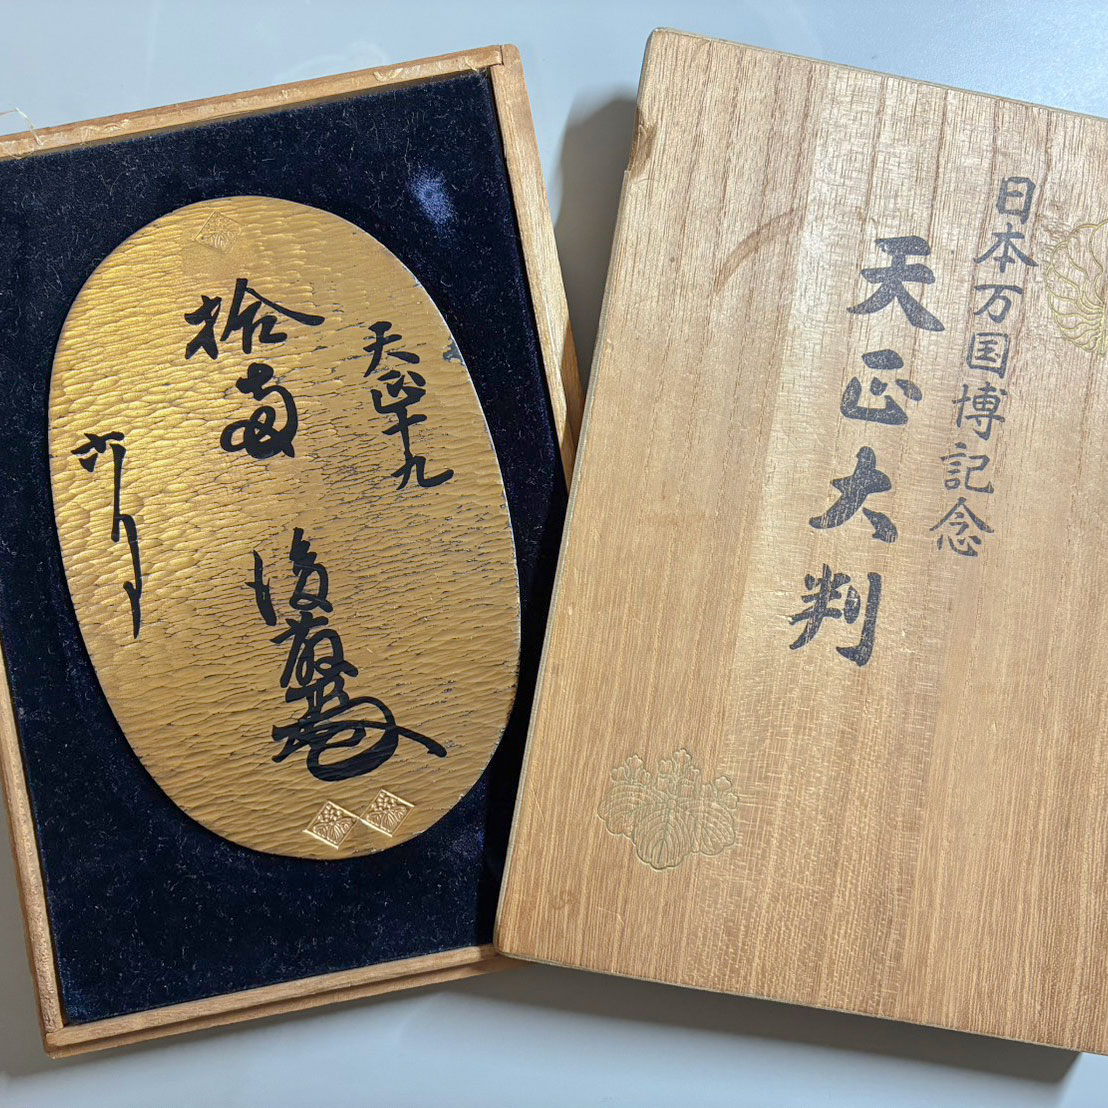 天正十九
拾両
後藤
日本万国博記念
天正大判